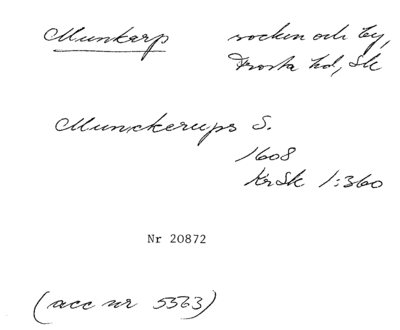 Munkarp socken och by,
Frosta hd, Sk
Munckerups S.
1608
KrSk 1:360
Nr 20872
(acc nr 5563)